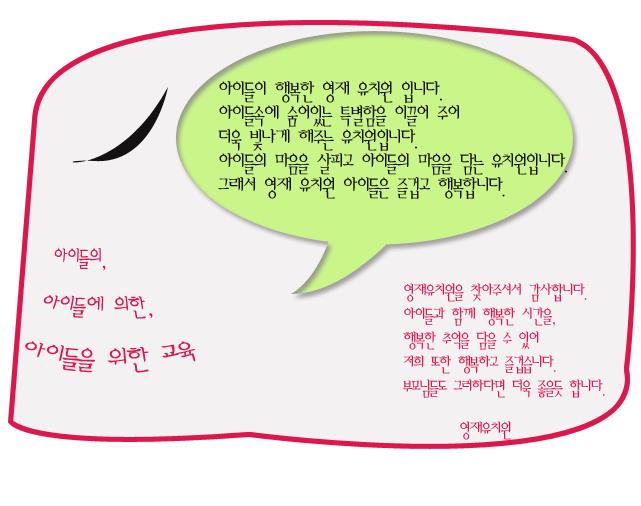 아이들이 행복한 영재 유치원 입니다.
아이들속에 숨어있는 특별함을 이끌어 주어
더욱 빛나게 해주는 유치원입니다.
아이들의 마음을 살피고 아이들의 마음을 담는 유치원입니다.
그래서 영재 유치원 아이들은 즐겁고 행복합니다.
아이들의,
아이들에 의한,
아이들을 위한 교육
영재유치원을 찾아주셔서 감사합니다.
아이들과 함께 행복한 시간을,
행복한 추억을 담을 수 있어
저희 또한 행복하고 즐겁습니다.
부모님들도 그러하다면 더욱 좋을듯 합니다.
영재유치원